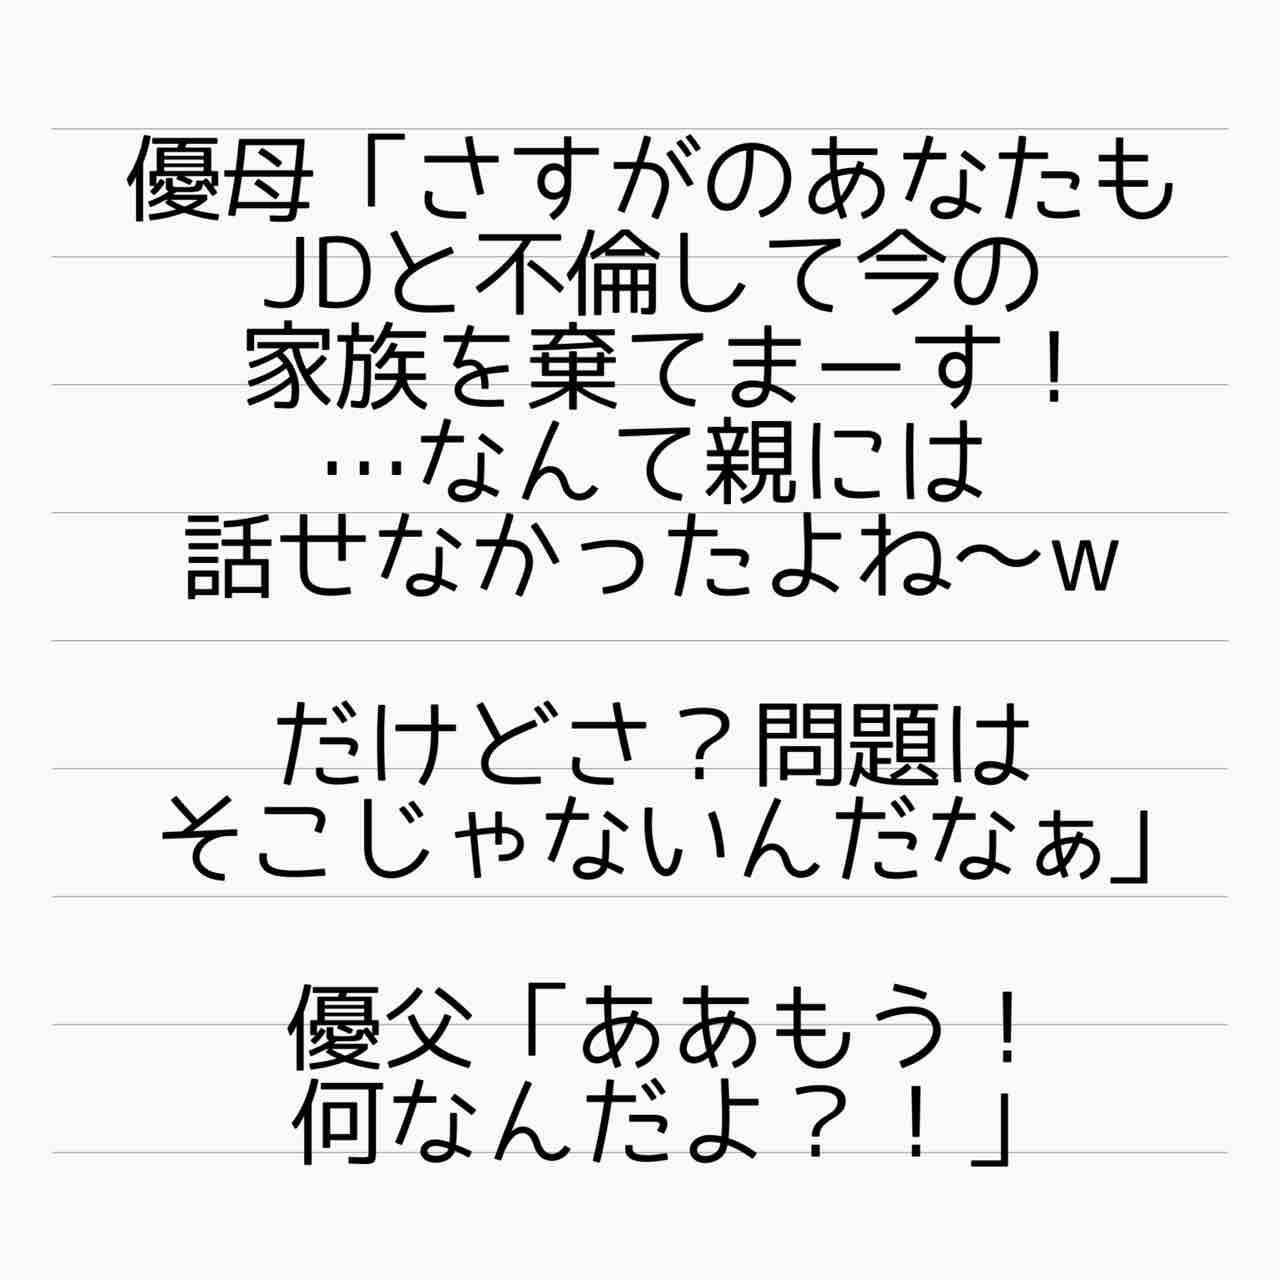 優母「さすがのあなたも
JDと不倫して今の
家族を棄てまーす！
…なんて親には
話せなかったよね〜w
だけどさ？問題は
そこじゃないんだなぁ」
優父「ああもう！
何なんだよ？！」